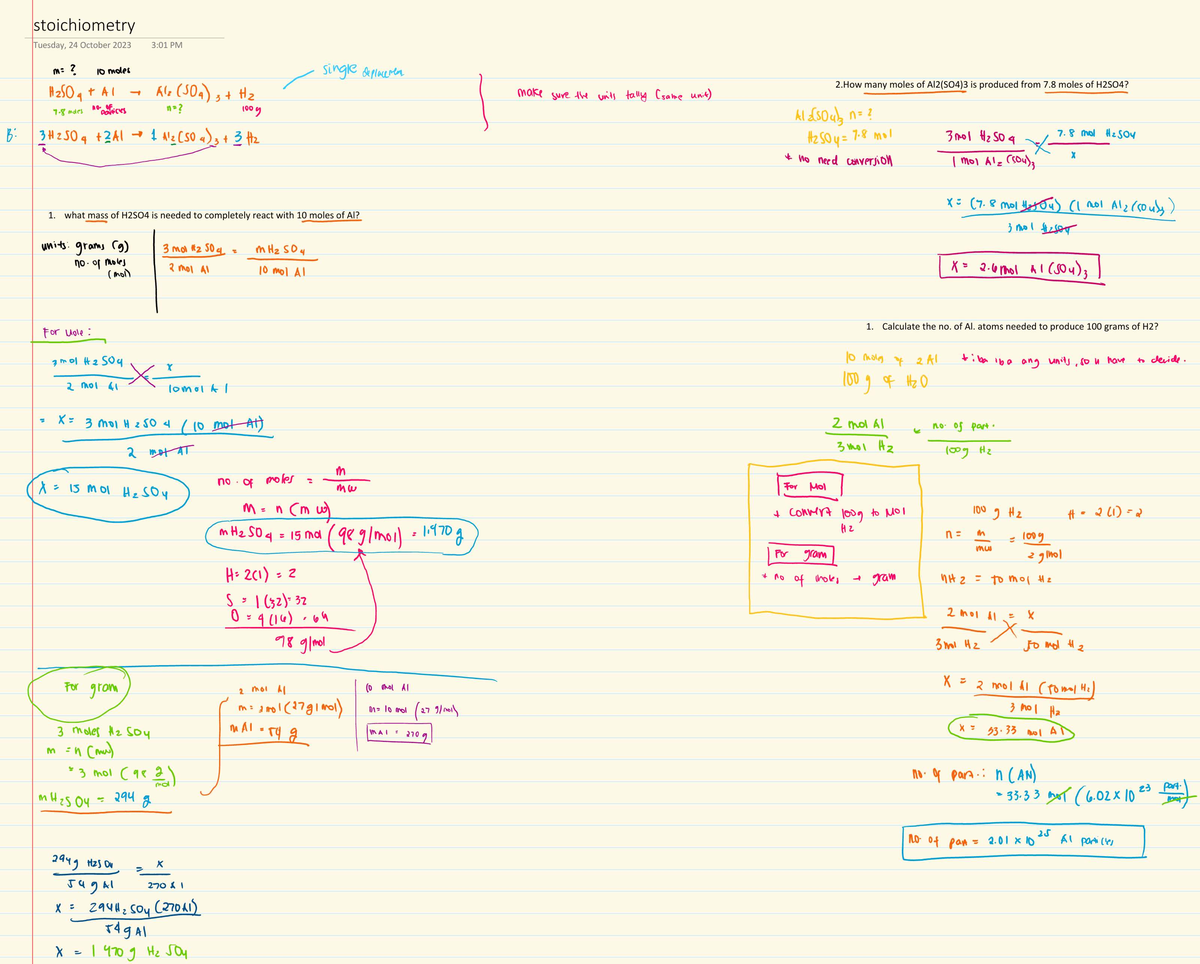 stoichiometry
Tuesday, 24 October 2023 3:01 PM
m= ? 10 moles
H2SO4 + Al → Al2(SO4)3 + H2
7.8 moles no. of particles n=? 100g
single displacement
B: 3H2SO4 + 2Al → 1 Al2(SO4)3 + 3H2
make sure the units tally (same unit)
1. what mass of H2SO4 is needed to completely react with 10 moles of Al?
units: grams (g)
no. of moles
(mol)
3 mol H2SO4 = mH2SO4
2 mol Al 10 mol Al
For Mole:
3 mol H2SO4 = x
2 mol Al 10 mol Al
= X = 3 mol H2SO4 (10 mol Al)
2 mol Al
X = 15 mol H2SO4
no. of moles = m
mw
m = n (mw)
mH2SO4 = 15 mol (98 g/mol) = 1,470 g
H = 2(1) = 2
S = 1(32) = 32
O = 4(16) = 64
98 g/mol
For gram
3 moles H2SO4
m = n (mw)
= 3 mol (98 g/mol)
mH2SO4 = 294 g
2 mol Al
m = 2 mol (27 g/mol)
mAl = 54 g
10 mol Al
m = 10 mol (27 g/mol)
mAl = 270 g
294g H2SO4 = x
54 g Al 270 Al
X = 294H2SO4 (270Al)
54g Al
X = 1 470 g H2SO4
2.How many moles of Al2(SO4)3 is produced from 7.8 moles of H2SO4?
Al2(SO4)3 n= ?
H2SO4 = 7.8 mol
* no need conversion
3 mol H2SO4 = 7.8 mol H2SO4
1 mol Al2(SO4)3 x
X = (7.8 mol H2SO4) (1 mol Al2(SO4)3)
3 mol H2SO4
X = 2.6 mol Al(SO4)3
1. Calculate the no. of Al. atoms needed to produce 100 grams of H2?
2Al
100 g of H2O
* iba iba ang units, so u have to decide.
2 mol Al = no. of part.
3 mol H2 100g H2
For Mol
* convert 100g to Mol
H2
For gram
* no of moles → gram
100 g H2 H = 2(1) = 2
n = m = 100g
mw 2 g/mol
nH2 = 50 mol H2
2 mol Al = x
3 mol H2 50 mol H2
X = 2 mol Al (50 mol H2)
3 mol H2
x = 33.33 mol Al
no. of part.: n (AN)
= 33.33 mol (6.02 x 10^23 part./mol)
no. of part = 2.01 x 10^25 Al particles